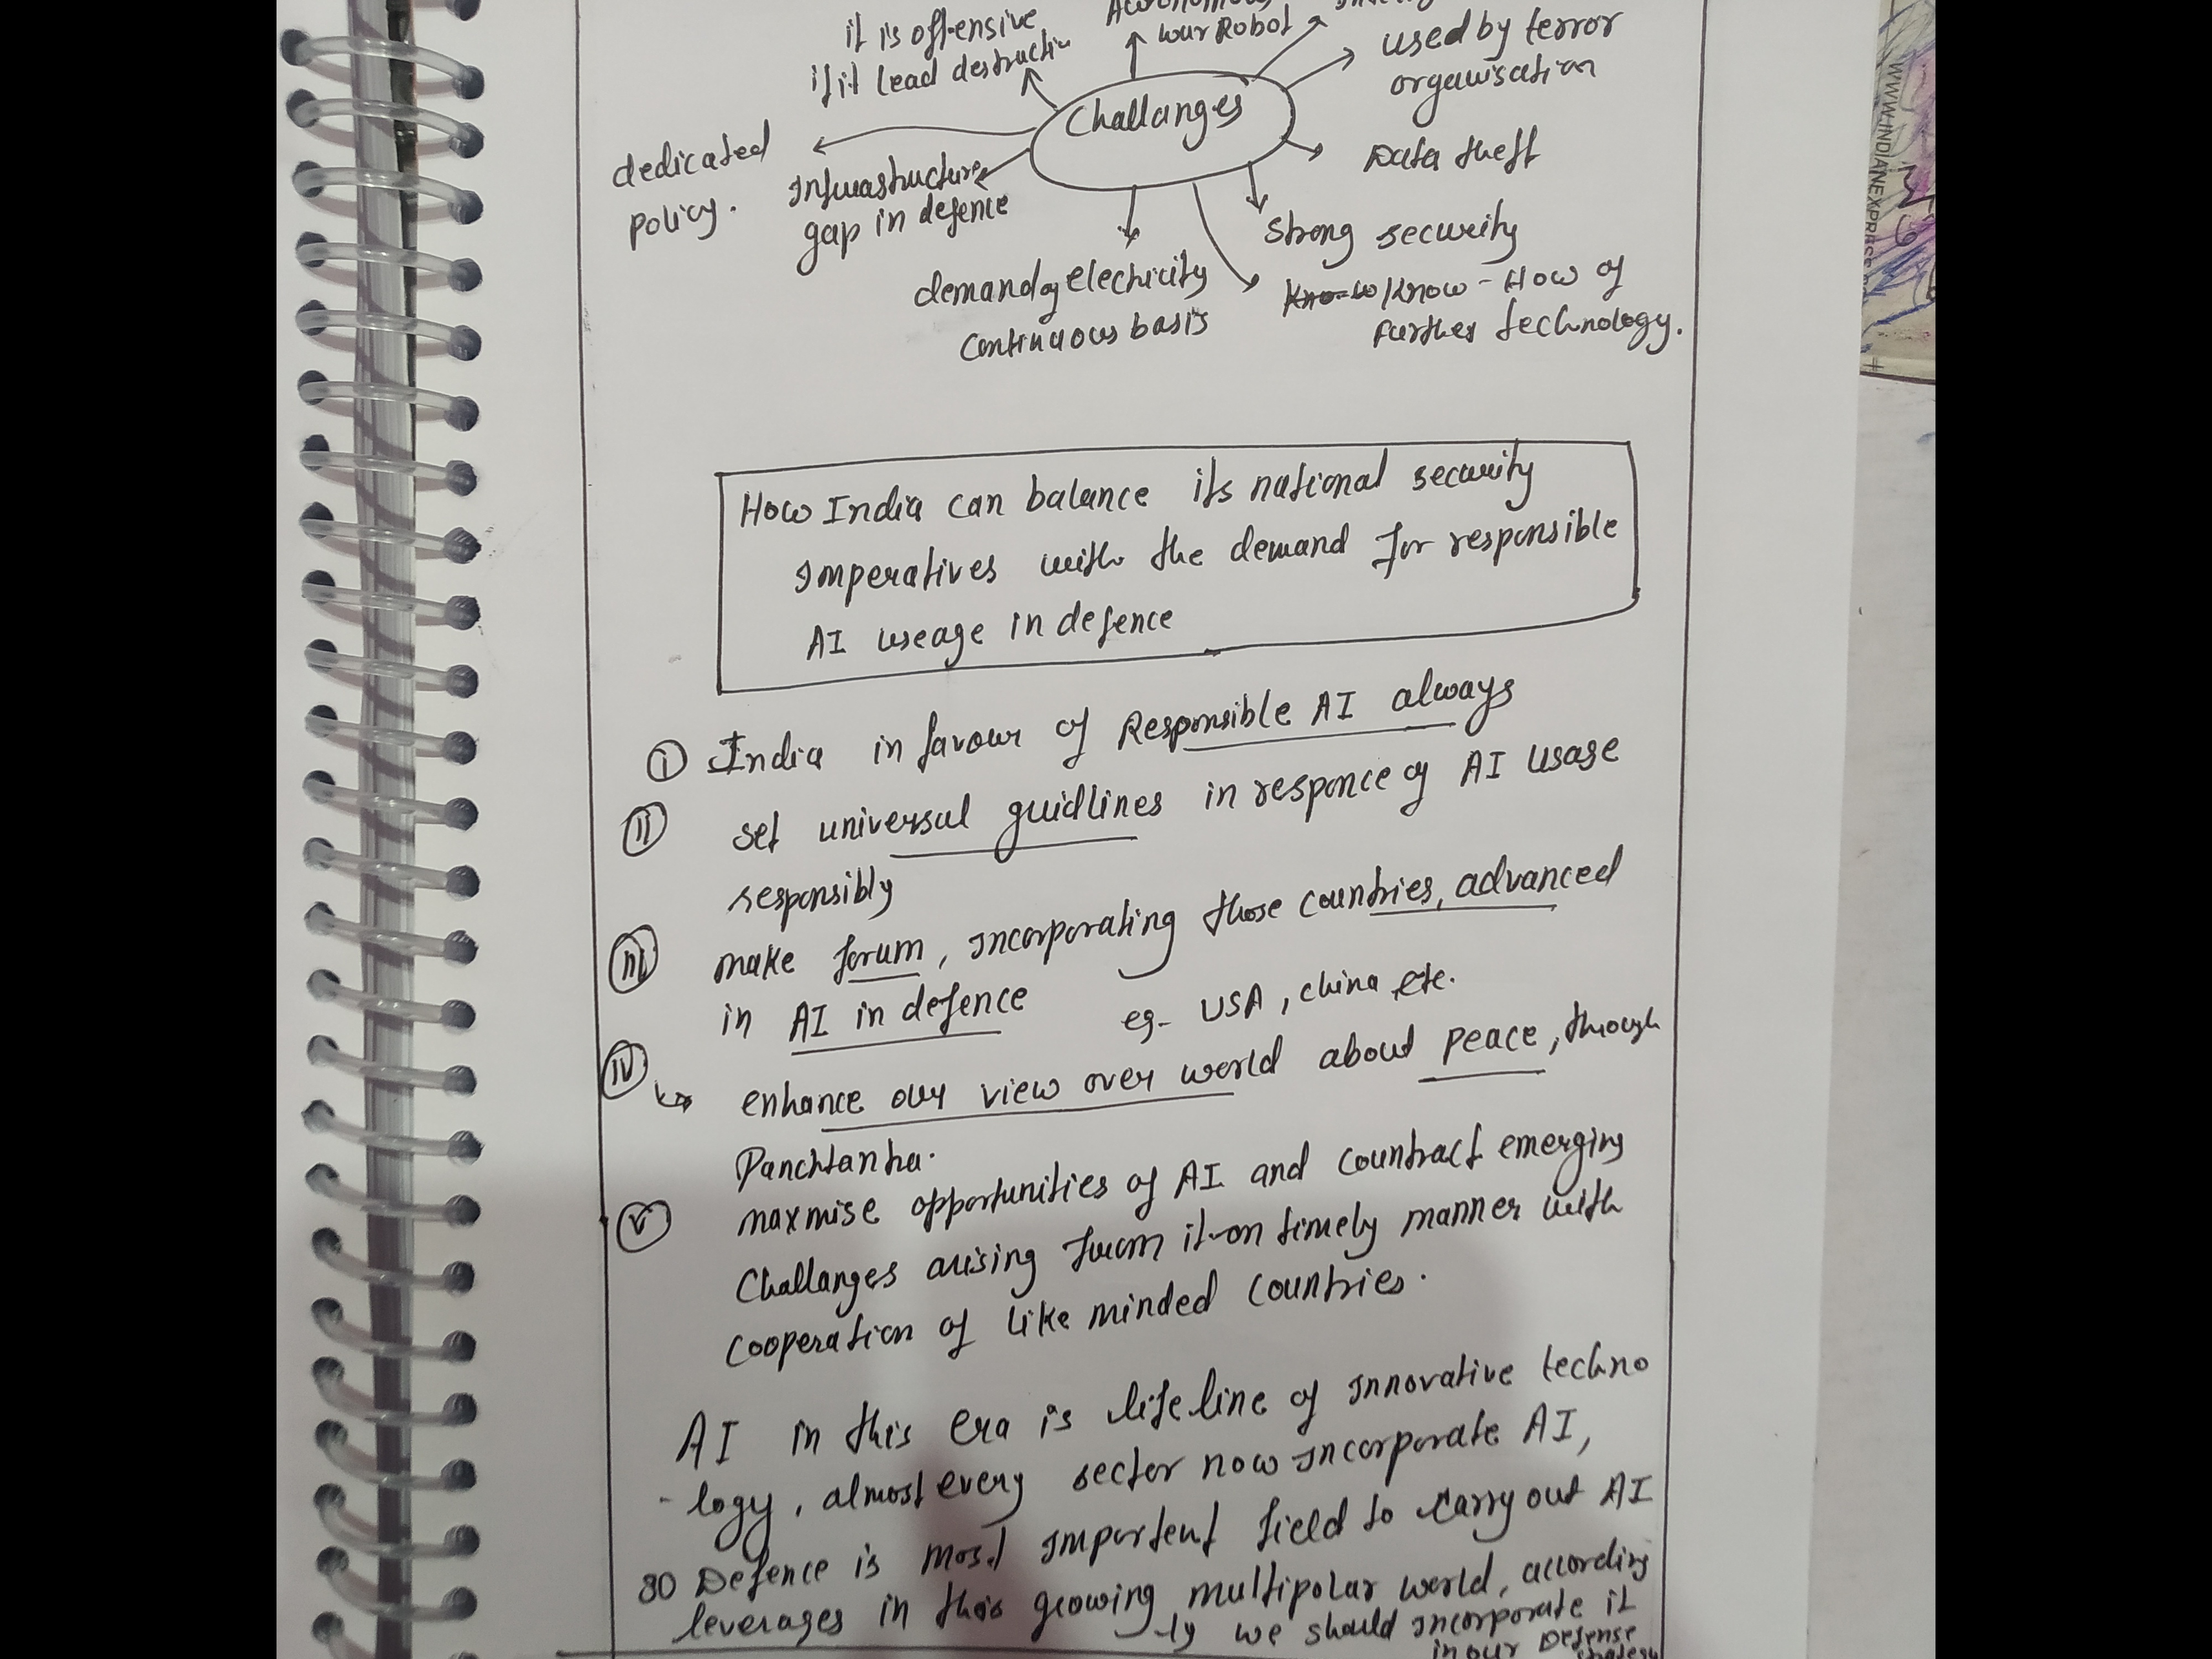 it is offensive
if it lead destructi
war Robot
used by terror
organisation
Challanges
dedicated
policy.
Infrastructure
gap in defence
Data theft
Strong security
demand of electricity
continuous basis
Know - How of
further technology.
How India can balance its national security
imperatives with the demand for responsible
AI useage in defence
i India in favour of Responsible AI always
ii set universal guidlines in responce of AI usase
responsibly
iii make forum, incorporating those countries, advanced
in AI in defence eg- USA, china, etc.
iv ↳ enhance our view over world about peace, through
Panchtantra.
v maxmise opportunities of AI and countract emerging
Challanges arising from it on timely manner with
cooperation of like minded countries.
AI in this era is lifeline of innovative techno
- logy, almost every sector now incorporate AI,
so Defence is most important field to carry out AI
leverages in this growing multipolar world, according
-ly we should incorporate it
in our Defense
strategy
WWW.INDIANEXPRESS